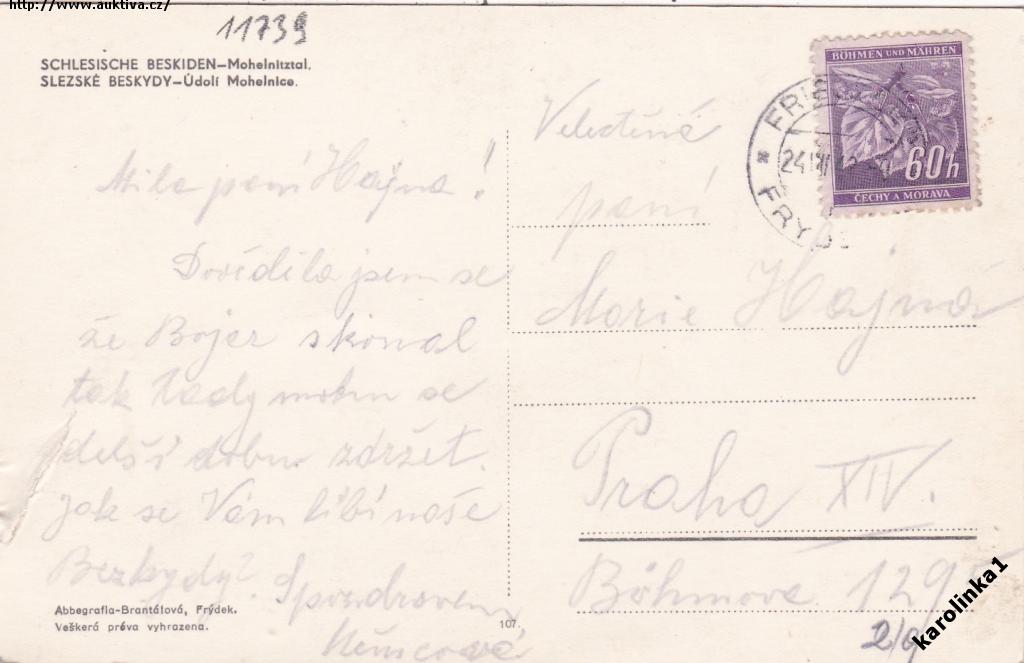 http://www.auktiva.cz/
11739
SCHLESISCHE BESKIDEN—Mohelnitztal.
SLEZSKÉ BESKYDY—Údolí Mohelnice.
Milá paní Hajná!
Dovídila jsem se
že Bojer skonal
tak tady mohu se
delší dobu zdržet.
Jak se Vám líbí naše
Bezkydy? S pozdravem
Němcová
Abbegrafia-Brantálová, Frýdek.
Veškerá práva vyhrazena.
107.
BÖHMEN UND MÄHREN
60h
ČECHY A MORAVA
Velectěná
paní
Marie Hajná
Praha XIV.
Böhmova 129
2/9
karolinka1